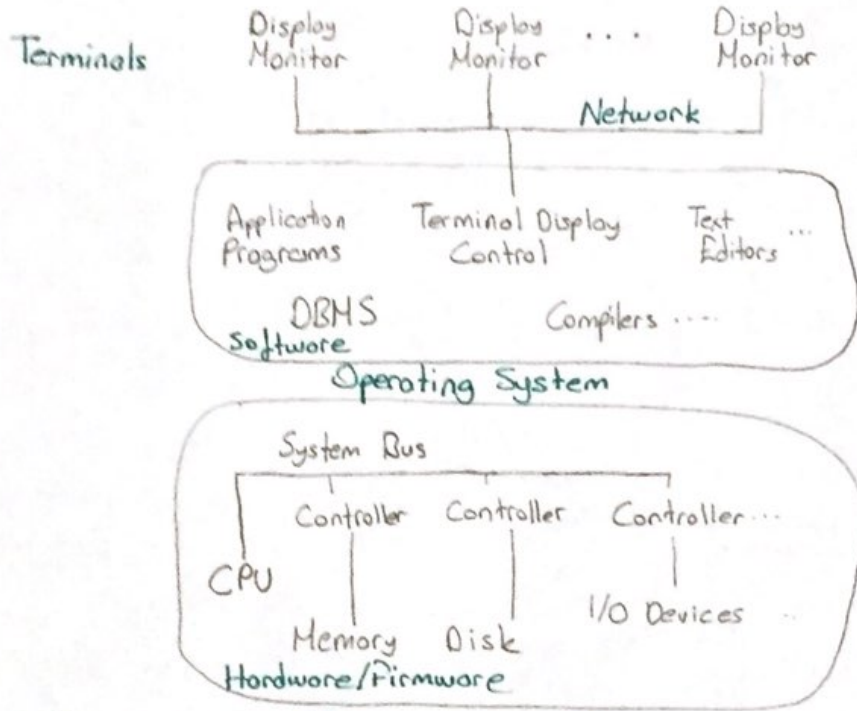 Terminals
Display Monitor
Display Monitor
. . .
Display Monitor
Network
Application Programs
Terminal Display Control
Text Editors ...
DBMS
Compilers .....
Software
Operating System
System Bus
Controller
Controller
Controller ...
CPU
Memory
Disk
I/O Devices ..
Hardware/Firmware